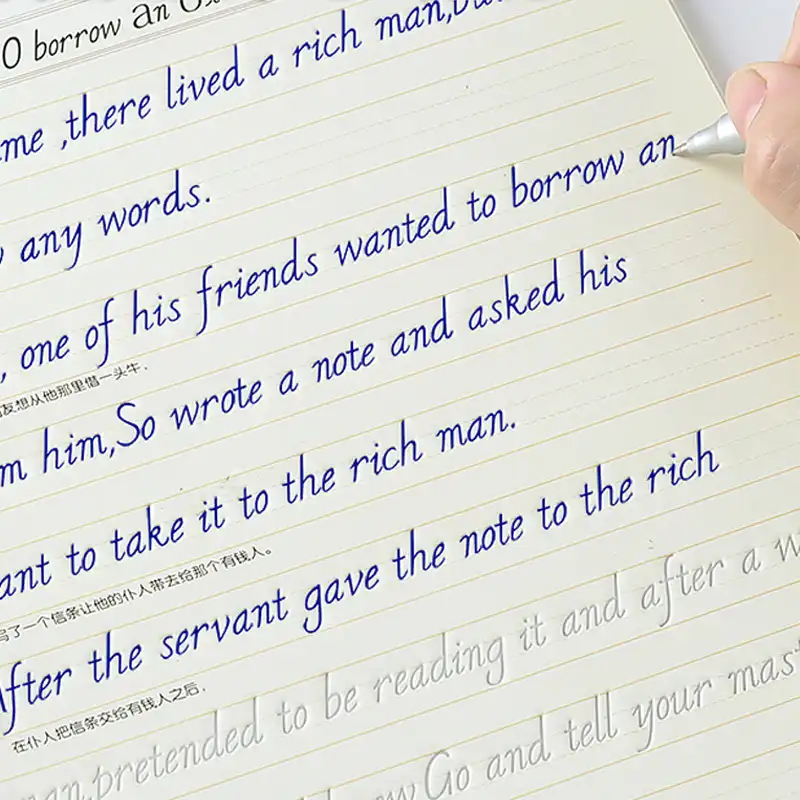 O borrow an
me ,there lived a rich man,bu
any words.
, one of his friends wanted to borrow an
友想从他那里借一头牛.
m him,So wrote a note and asked his
ant to take it to the rich man.
写了一个信条让他的仆人带去给那个有钱人。
After the servant gave the note to the rich
在仆人把信条交给有钱人之后.
an,pretended to be reading it and after a w
ow Go and tell your mast